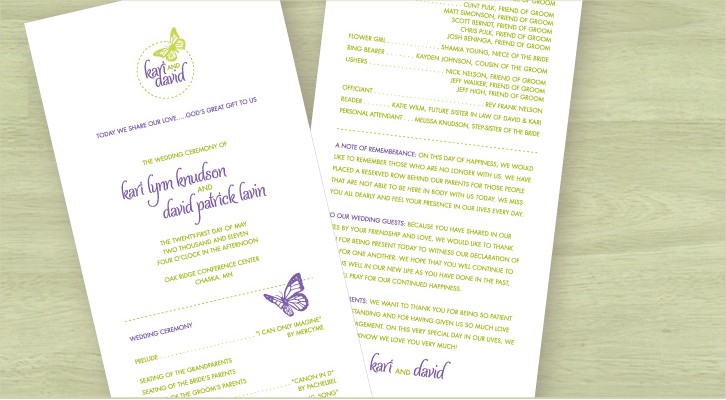 kari AND
david
TODAY WE SHARE OUR LOVE.....GOD'S GREAT GIFT TO US
THE WEDDING CEREMONY OF
kari lynn knudson
AND
david patrick lavin
THE TWENTY-FIRST DAY OF MAY
TWO THOUSAND AND ELEVEN
FOUR O'CLOCK IN THE AFTERNOON
OAK RIDGE CONFERENCE CENTER
CHASKA, MN
WEDDING CEREMONY
PRELUDE . . . . . . . . . . . . . . . . . . . . . . . . "I CAN ONLY IMAGINE"
BY MERCYME
SEATING OF THE GRANDPARENTS
SEATING OF THE BRIDE'S PARENTS
OF THE GROOM'S PARENTS . . . . . . . . . . "CANON IN D"
BY PACHELBEL
SONG"
CLINT PULK, FRIEND OF GROOM
MATT SIMONSON, FRIEND OF GROOM
SCOTT BERNDT, FRIEND OF GROOM
CHRIS PULK, FRIEND OF GROOM
JOSH BENINGA, FRIEND OF GROOM
FLOWER GIRL . . . . . . . . . . . . SHAMIA YOUNG, NIECE OF THE BRIDE
RING BEARER . . . . . . . KAYDEN JOHNSON, COUSIN OF THE GROOM
USHERS . . . . . . . . . . . . . . . . . NICK NELSON, FRIEND OF GROOM
JEFF WALKER, FRIEND OF GROOM
JEFF HIGH, FRIEND OF GROOM
OFFICIANT . . . . . . . . . . . . . . . . . . . . . . . . . REV FRANK NELSON
READER . . . . . . . KATIE WILM, FUTURE SISTER IN LAW OF DAVID & KARI
PERSONAL ATTENDANT . . . MELISSA KNUDSON, STEP-SISTER OF THE BRIDE
A NOTE OF REMEMBERANCE: ON THIS DAY OF HAPPINESS, WE WOULD
LIKE TO REMEMBER THOSE WHO ARE NO LONGER WITH US. WE HAVE
PLACED A RESERVED ROW BEHIND OUR PARENTS FOR THOSE PEOPLE
THAT ARE NOT ABLE TO BE HERE IN BODY WITH US TODAY. WE MISS
YOU ALL DEARLY AND FEEL YOUR PRESENCE IN OUR LIVES EVERY DAY.
O OUR WEDDING GUESTS: BECAUSE YOU HAVE SHARED IN OUR
ES BY YOUR FRIENDSHIP AND LOVE, WE WOULD LIKE TO THANK
FOR BEING PRESENT TODAY TO WITNESS OUR DECLARATION OF
FOR ONE ANOTHER. WE HOPE THAT YOU WILL CONTINUE TO
US WELL IN OUR NEW LIFE AS YOU HAVE DONE IN THE PAST,
LL PRAY FOR OUR CONTINUED HAPPINESS.
ENTS: WE WANT TO THANK YOU FOR BEING SO PATIENT
STANDING AND FOR HAVING GIVEN US SO MUCH LOVE
AGEMENT. ON THIS VERY SPECIAL DAY IN OUR LIVES, WE
KNOW WE LOVE YOU VERY MUCH!
kari AND david